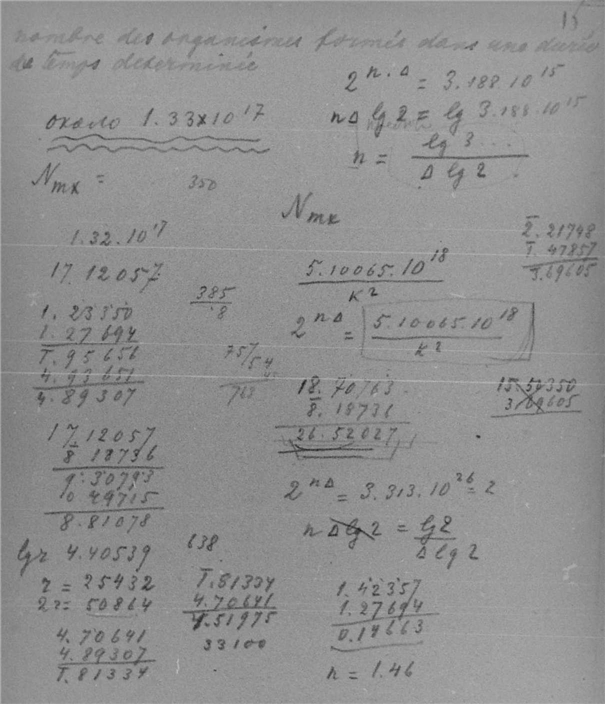 15
nombre des organismes formés dans une durée
de temps determinée
2^{n.Δ} = 3.188.10^{15}
nΔ lg 2 = lg 3.188.10^{15}
n = lg 3... / Δ lg 2
около 1.33×10^{17}
N_{mx} =
350
1.32.10^{17}
17.12057
1.23350
1.27694
1̅.95656
4.93651
4.89307
17.12057
8̅.18736
9.30793
0.49715
8.81078
lg r 4.40539
r = 25432
2r = 50864
4.70641
4.89307
1̅.81334
385
8
757
54
763
638
1̅.81334
4.70641
4.51975
33100
N_{mx}
5.10065.10^{18} / K^2
2^{nΔ} = 5.10065.10^{18} / K^2
18.70763
8̅.18736
26.52027
2^{nΔ} = 3.313.10^{26} = 2
n Δ lg 2 = lg 2 / Δ lg 2
1.42357
1.27694
0.14663
n = 1.46
2̅.21748
1̅.47857
3̅.69605
15.50350
3.69605